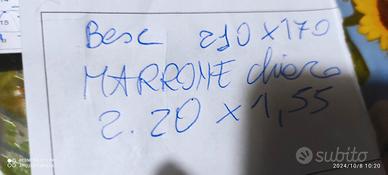 Besc 210x170
MARRONE chiaro
2.20 x 1,55
2024/10/8 10:20
subito